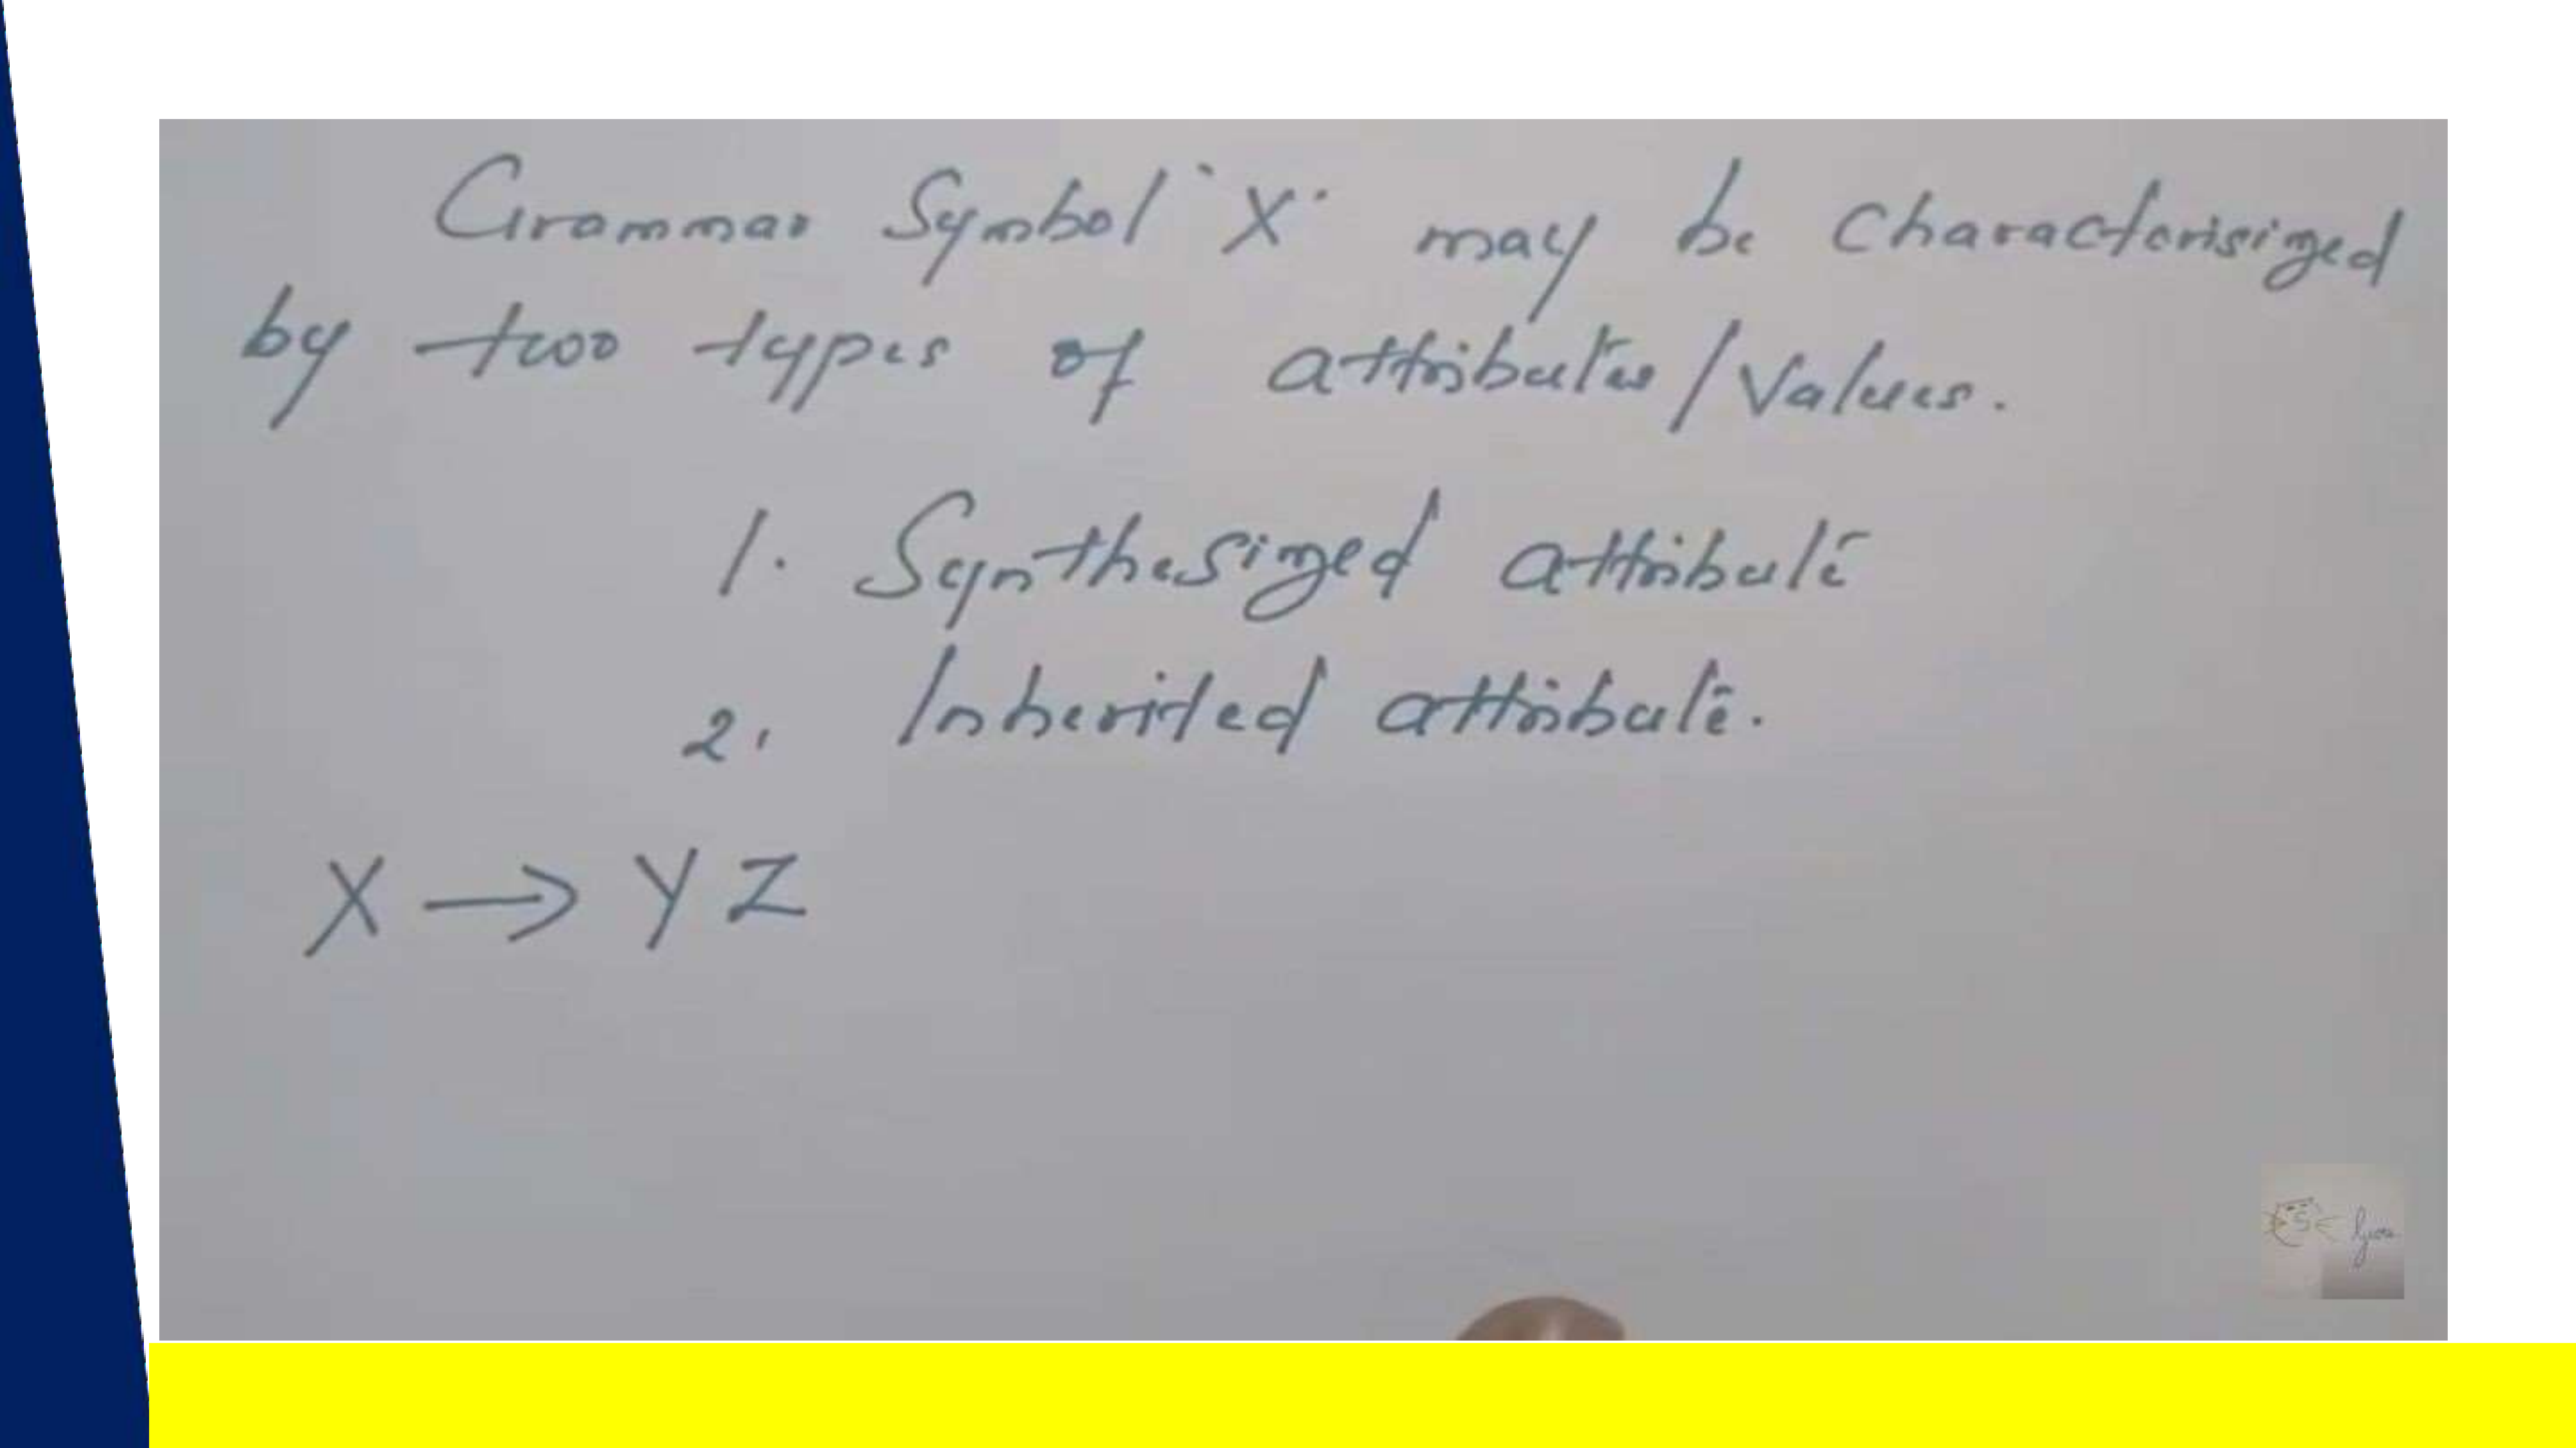 Grammar Symbol 'X' may be Characterisized
by two types of attributes/Values.
1. Synthesized attribute
2. Inherited attribute.
X → Y Z